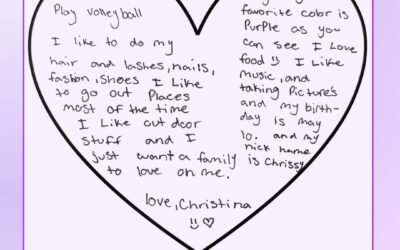 Play volleyball
I like to do my
hair and lashes, nails,
fashion, shoes I Like
to go out Places
most of the time
I Like out door
stuff and I
just want a family
to love on me.
favorite color is
PurPle as you
can see I Love
food I Like
music, and
taking Pictures
and my birth-
day is may
10. and my
nick name
is Chrissy
love, Christina